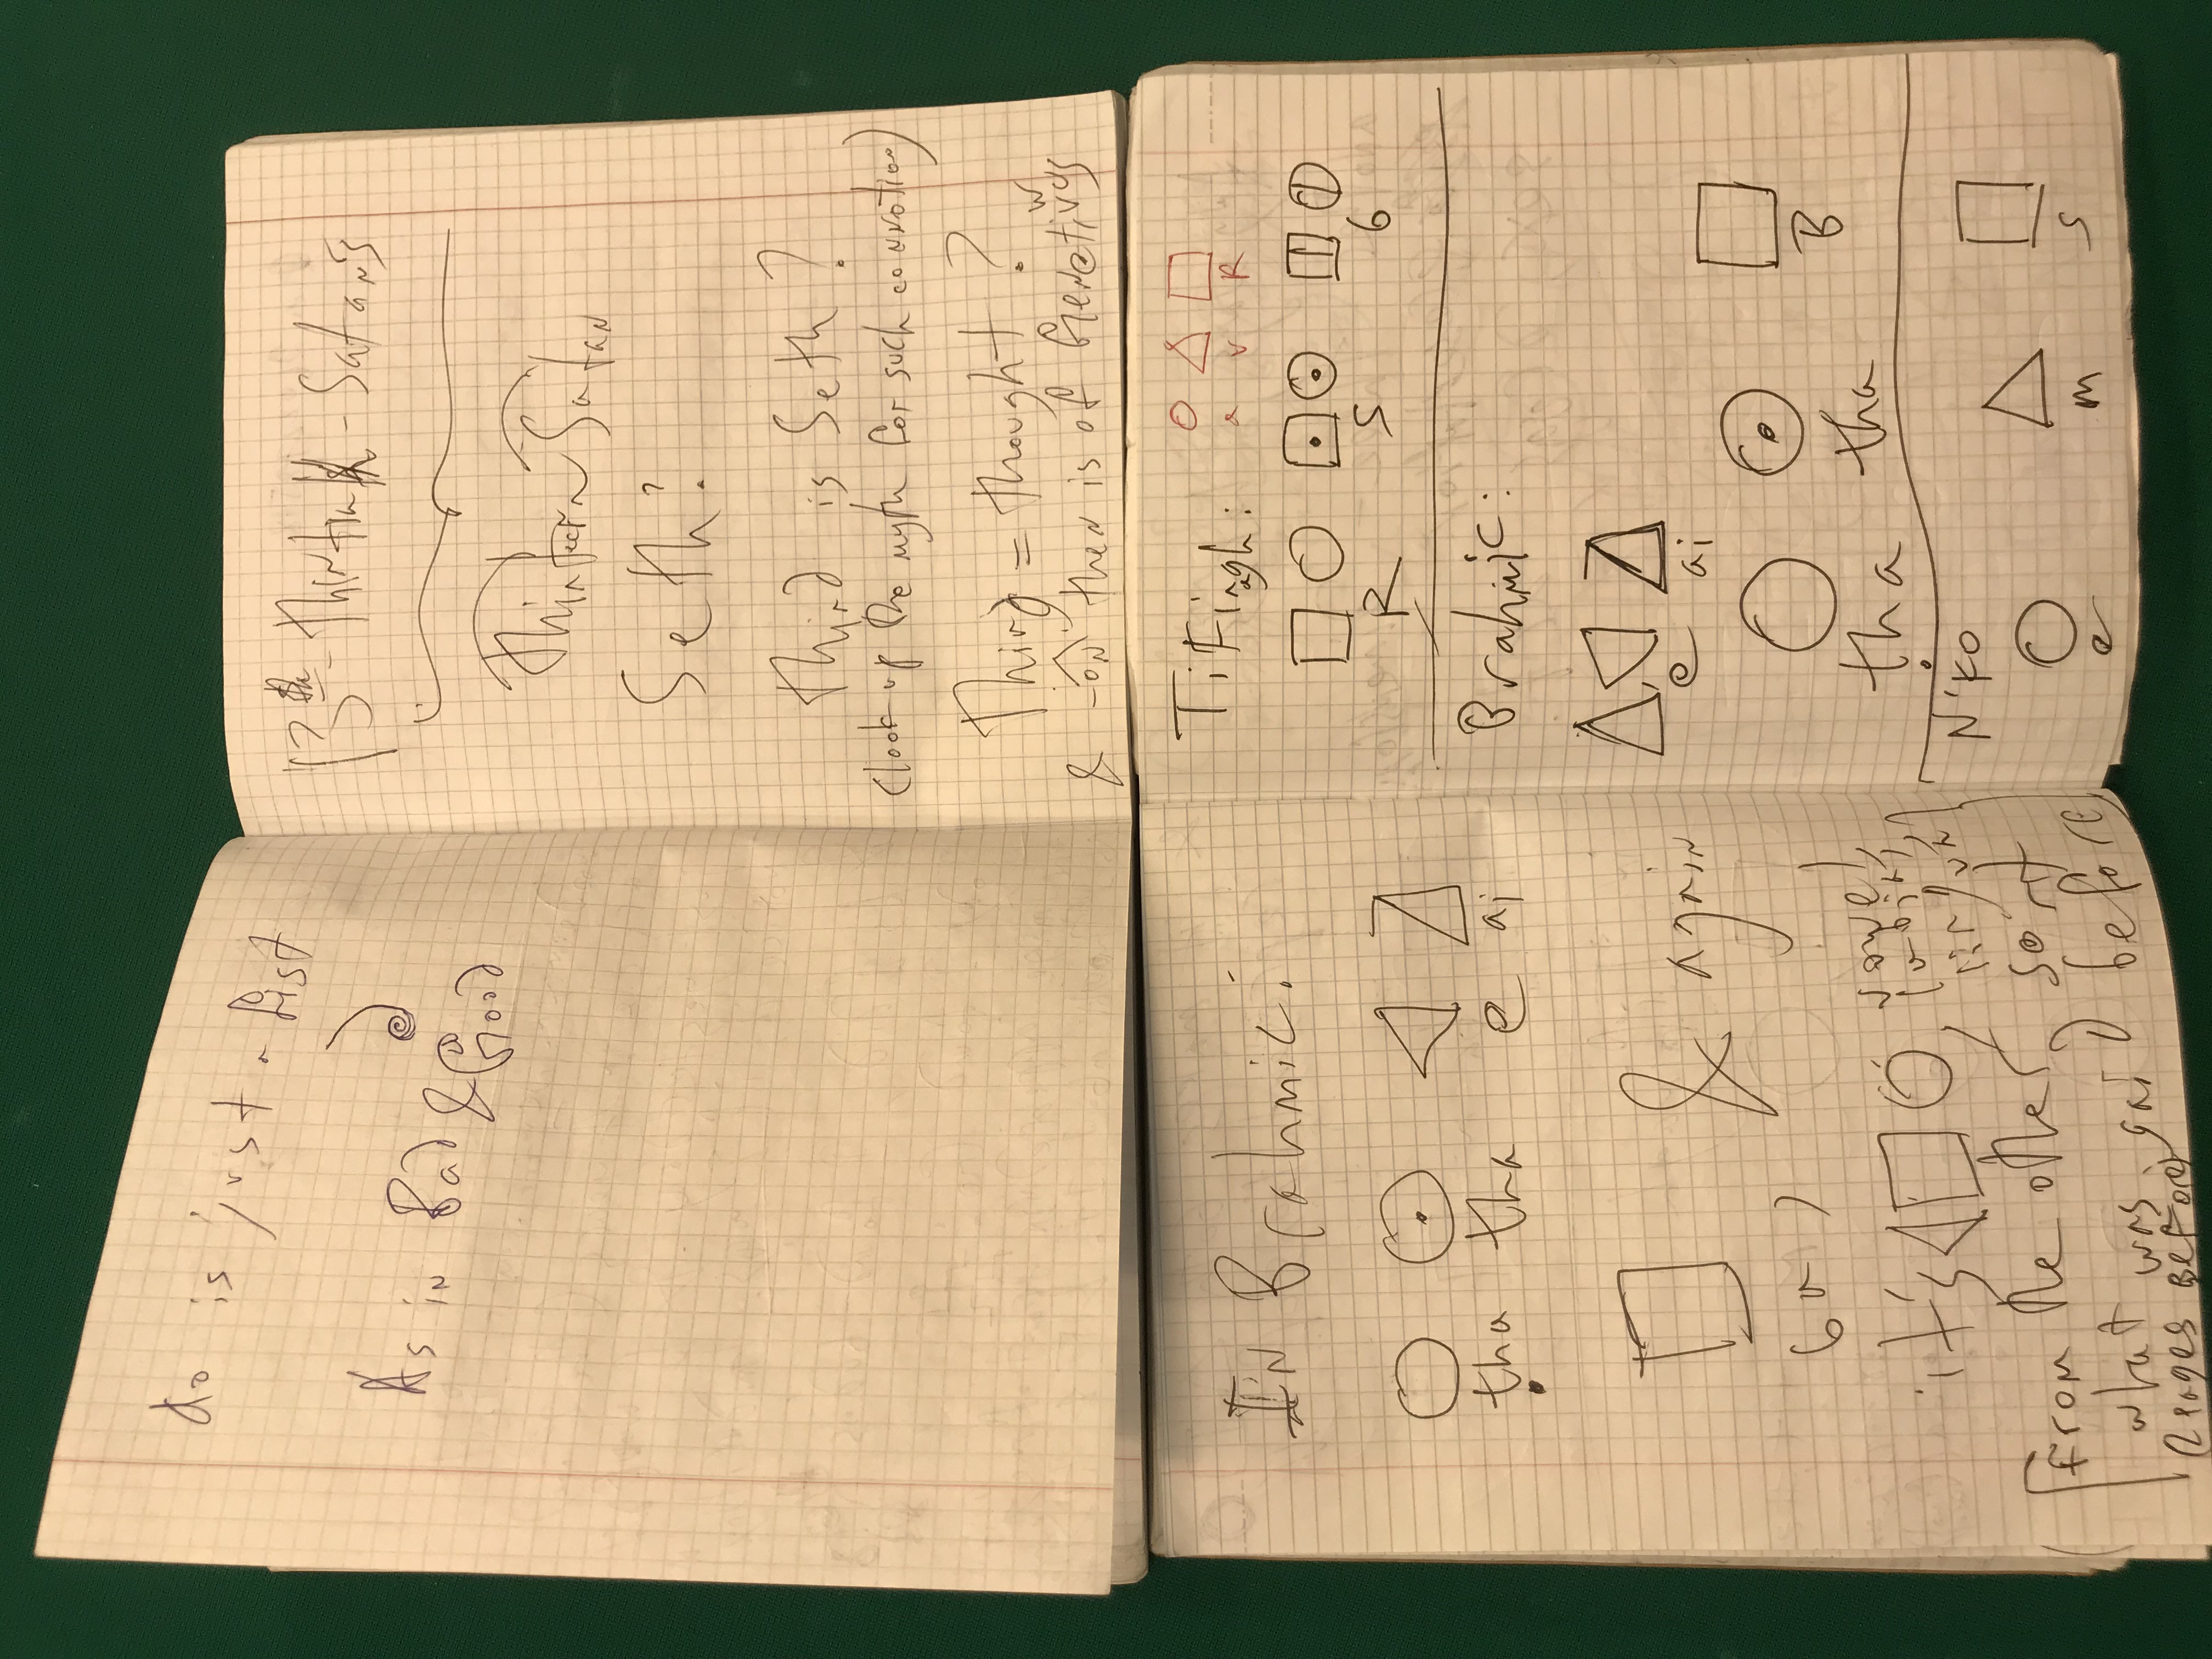 do is just a fist
As in Bad & Good
13th - Thirteenth - Satan's
Thirteen Satan
Seth?
Third is Seth?
(look up the myth for such connotion)
Third = thought?
& -on then is of Genetivus
w
In Brahmic:
tha tha e ai
ba, & again
it's vowel
labial,
lingual
From the other sort
what was said before
(2 pages before)
Tifinagh:
a v R
R S 6
Brahmic:
e ai
tha tha B
N'KO
e m s